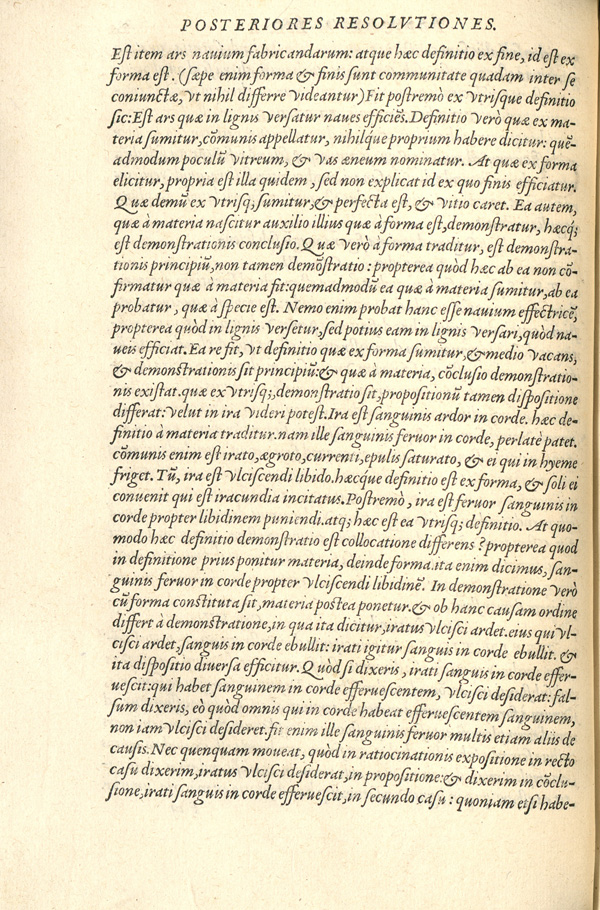 POSTERIORES RESOLVTIONES.
Est item ars nauium fabricandarum: atque hæc definitio ex fine, id est ex
forma est. (sæpe enim forma & finis sunt communitate quadam inter se
coniunctæ, vt nihil differre videantur) Fit postremò ex vtrisque definitio
sic: Est ars quæ in lignis versatur naues efficiẽs. Definitio verò quæ ex ma-
teria sumitur, cõmunis appellatur, nihilq́ue proprium habere dicitur: quẽ-
admodum poculũ vitreum, & vas æneum nominatur. At quæ ex forma
elicitur, propria est illa quidem, sed non explicat id ex quo finis efficiatur.
Quæ demũ ex vtrisq; sumitur, & perfecta est, & vitio caret. Ea autem,
quæ à materia nascitur auxilio illius quæ à forma est, demonstratur, hæcq́;
est demonstrationis conclusio. Quæ verò à forma traditur, est demonstra-
tionis principiũ, non tamen demõstratio: propterea quòd hæc ab ea non cõ-
firmatur quæ à materia fit: quemadmodũ ea quæ à materia sumitur, ab ea
probatur, quæ à specie est. Nemo enim probat hanc esse nauium effectricẽ,
propterea quòd in lignis versetur, sed potius eam in lignis versari, quòd na-
ueis efficiat. Ea re fit, vt definitio quæ ex forma sumitur, & medio vacans,
& demonstrationis sit principiũ: & quæ à materia, cõclusio demonstratio-
nis existat. quæ ex vtrisq;, demonstratio sit, propositionũ tamen dispositione
differat: velut in ira videri potest. Ira est sanguinis ardor in corde. hæc de-
finitio à materia traditur. nam ille sanguinis feruor in corde, perlatè patet.
cõmunis enim est irato, ægroto, currenti, epulis saturato, & ei qui in hyeme
friget. Tũ, ira est vlciscendi libido. hæcque definitio est ex forma, & soli ei
conuenit qui est iracundia incitatus. Postremò, ira est feruor sanguinis in
corde propter libidinem puniendi. atq; hæc est ea vtrisq; definitio. At quo-
modo hæc definitio demonstratio est collocatione differens? propterea quod
in definitione prius ponitur materia, deinde forma. ita enim dicimus, san-
guinis feruor in corde propter vlciscendi libidinẽ. In demonstratione verò
cũ forma constituta sit, materia postea ponetur. & ob hanc causam ordine
differt à demonstratione, in qua ita dicitur, iratus vlcisci ardet. eius qui vl-
cisci ardet, sanguis in corde ebullit: irati igitur sanguis in corde ebullit. &
ita dispositio diuersa efficitur. Quòd si dixeris, irati sanguis in corde effer-
uescit: qui habet sanguinem in corde efferuescentem, vlcisci desiderat: fal-
sum dixeris, eò quòd omnis qui in corde habeat efferuescentem sanguinem,
non iam vlcisci desideret. fit enim ille sanguinis feruor multis etiam aliis de
causis. Nec quenquam moueat, quòd in ratiocinationis expositione in recto
casu dixerim, iratus vlcisci desiderat, in propositione: & dixerim in cõclu-
sione, irati sanguis in corde efferuescit, in secundo casu: quoniam etsi habe-